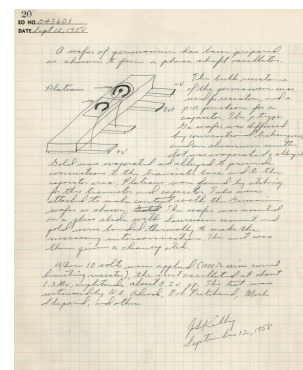 20
EO NO. 043601
DATE Sept 12, 1958
A wafer of germanium has been prepared
as shown to form a phase shift oscillator.
Plateaus
-V
Out
+V
The bulk resistance
of the germanium was
used for resistor, and a
junction for a
capacitor. The
Ge wafer was diffused
by conventional techniques
and an aluminum emitter
dot was evaporated & alloyed.
Gold was evaporated and alloyed to provide
connections to the transistor base and to the
capacitor area. Plateaus were formed by etching
for the transistor and capacitor. Tabs were
attached to make contact with the
wafer as shown. The wafer was mounted
on a glass slide with cement and
gold wires bonded thermally to make the
necessary interconnections. The unit was
then given a cleanup etch.
When 10 volts were applied (in series current
limiting resistor), the unit oscillated at about
1.3 Mc, amplitude about 0.2 v pp. The test was
witnessed by W. A. Adcock, Bob Pritchard, Mark
Shepard, and others.
Jack Kilby
September 12, 1958